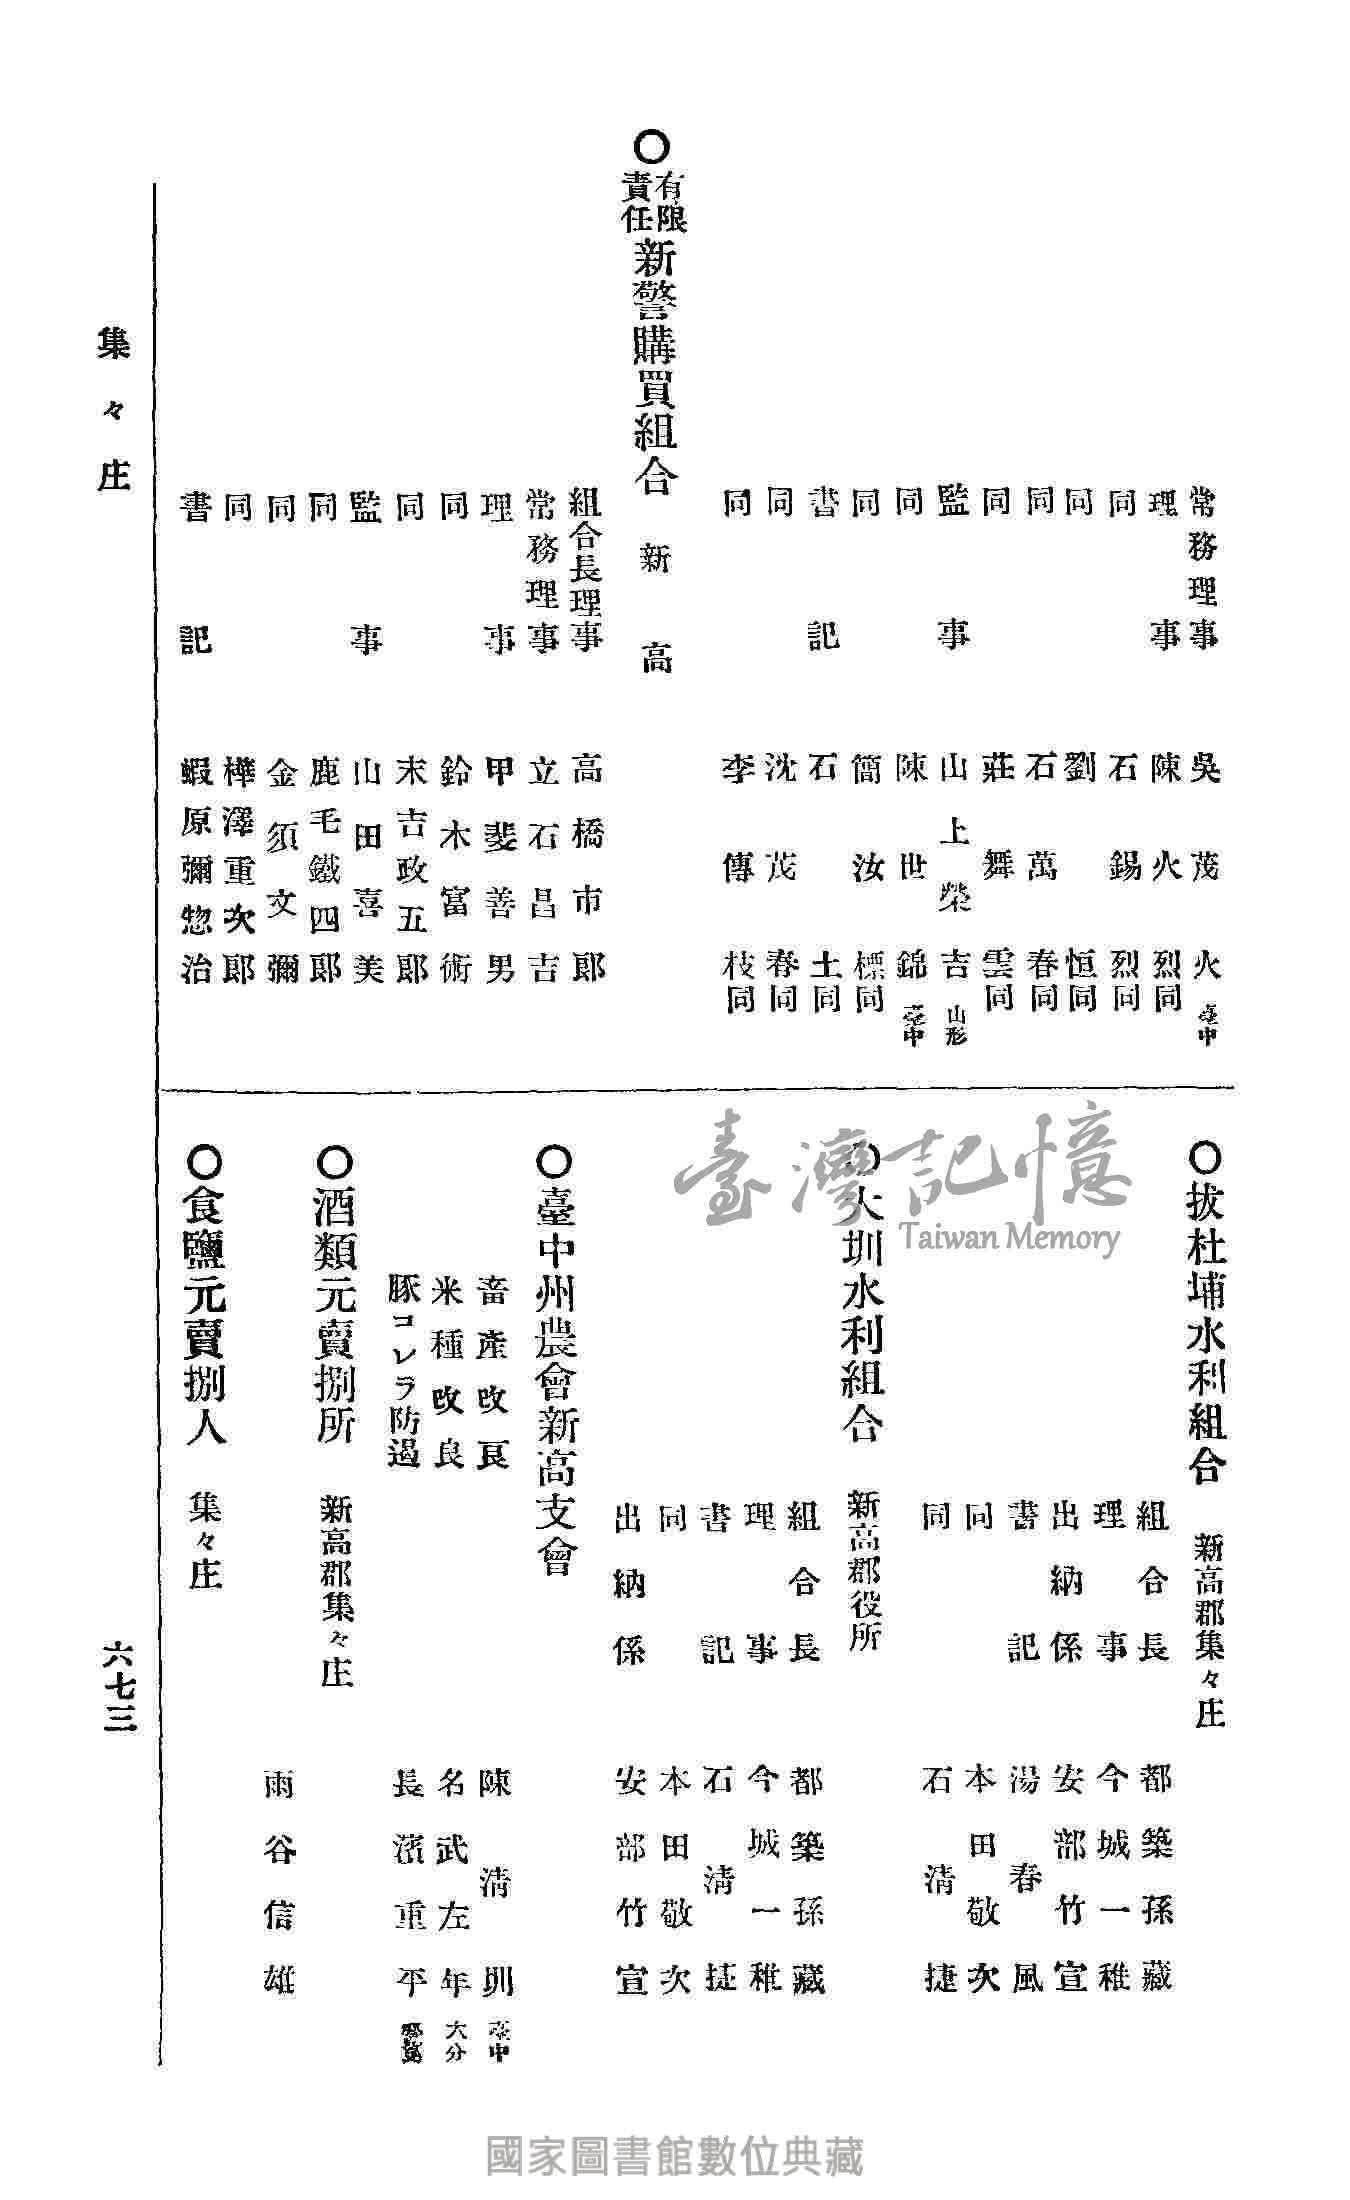 常務理事 吳茂火 臺中
理事 陳火烈 同
同 石錫烈 同
同 劉恒 同
同 石萬春 同
同 莊舞雲 同
監事 山上榮吉 山形
同 陳世錦 臺中
同 簡汝標 同
書記 石土 同
同 沈茂春 同
同 李傳枝 同
〇有限責任新警購買組合 新高
組合長理事 高橋市郎
常務理事 立石昌吉
理事 甲斐善男
同 鈴木富術
同 末吉政五郎
監事 山田喜美
同 鹿毛鐵四郎
同 金須文彌
同 樺澤重次郎
書記 蝦原彌惣治
〇拔杜埔水利組合 新高郡集々庄
組合長 都築孫藏
理事 今城一稚
出納係 安部竹宣
書記 湯春風
同 本田敬次
同 石清捷
〇大圳水利組合 新高郡役所
組合長 都築孫藏
理事 今城一稚
書記 石清捷
同 本田敬次
出納係 安部竹宣
〇臺中州農會新高支會
畜產改良 陳清圳 臺中
米種改良 名武左年 大分
豚コレラ防遏 長濱重平
〇酒類元賣捌所 新高郡集々庄
雨谷信雄
〇食鹽元賣捌人 集々庄
集々庄
六七三
臺灣記憶
Taiwan Memory
國家圖書館數位典藏